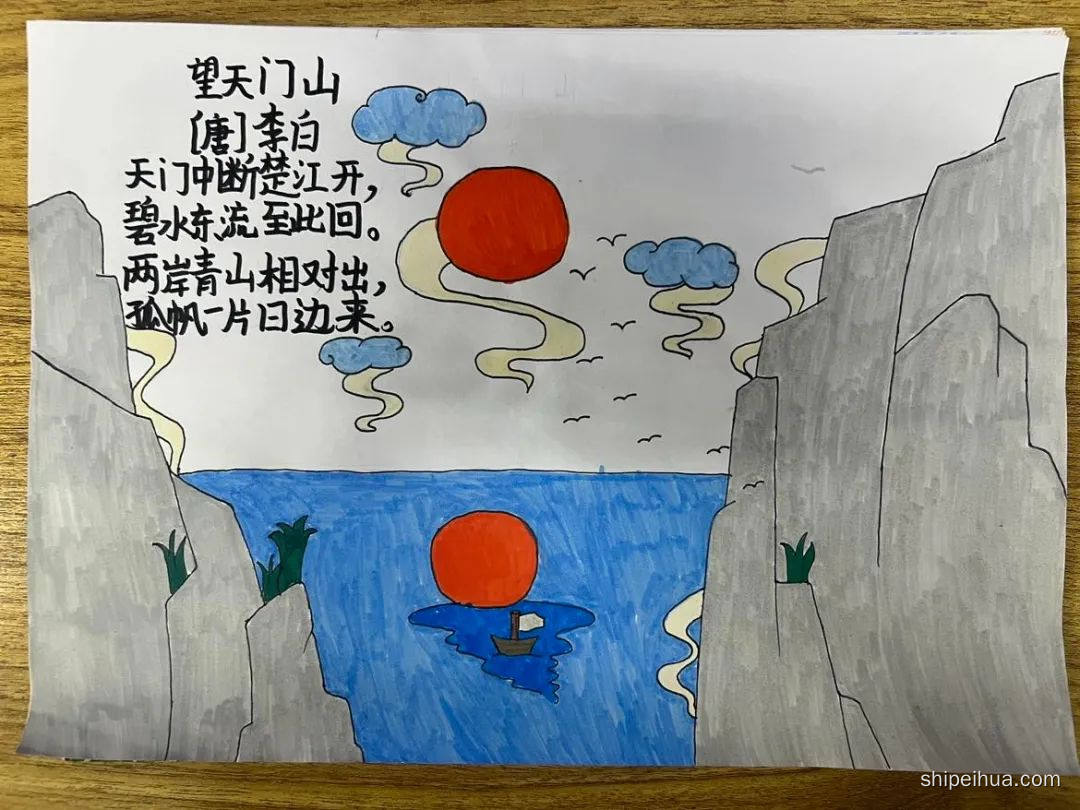 望天门山
[唐]李白
天门中断楚江开,
碧水东流至此回。
两岸青山相对出,
孤帆一片日边来。
shipeihua.com